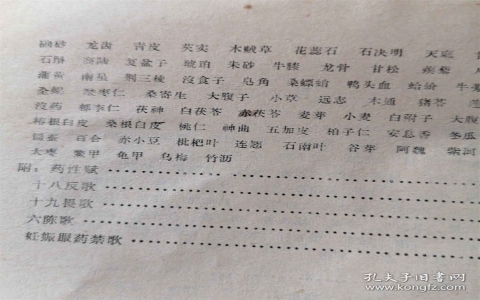 硇砂 龙齿 青皮 芡实 木贼草 花蕊石 石决明 天
石斛 复盆子 琥珀 朱砂 牛膝 龙骨 甘松
南星 荆三棱 没食子 皂角 桑螵蛸 鸭头血 蛤蚧 牛
桑寄生 大腹子 小草 远志 木通
没药 郁李仁 茯神 白茯苓 赤茯苓 麦芽 小麦 大
椿根白皮 桑根白皮 桃仁 神曲 五加皮 柏子仁 安息香 冬瓜
百合 赤小豆 枇杷叶 连翘 石南叶 谷芽 阿魏 紫河
大枣 鳖甲 龟甲 乌梅 竹沥
附：药性赋
十八反歌
十九畏歌
六陈歌
妊娠服药禁歌
孔夫子旧书网
www.kongfz.com